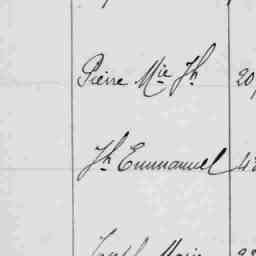 Pierre Mie Jh 20
Jh Emmanuel
Joseph Marie